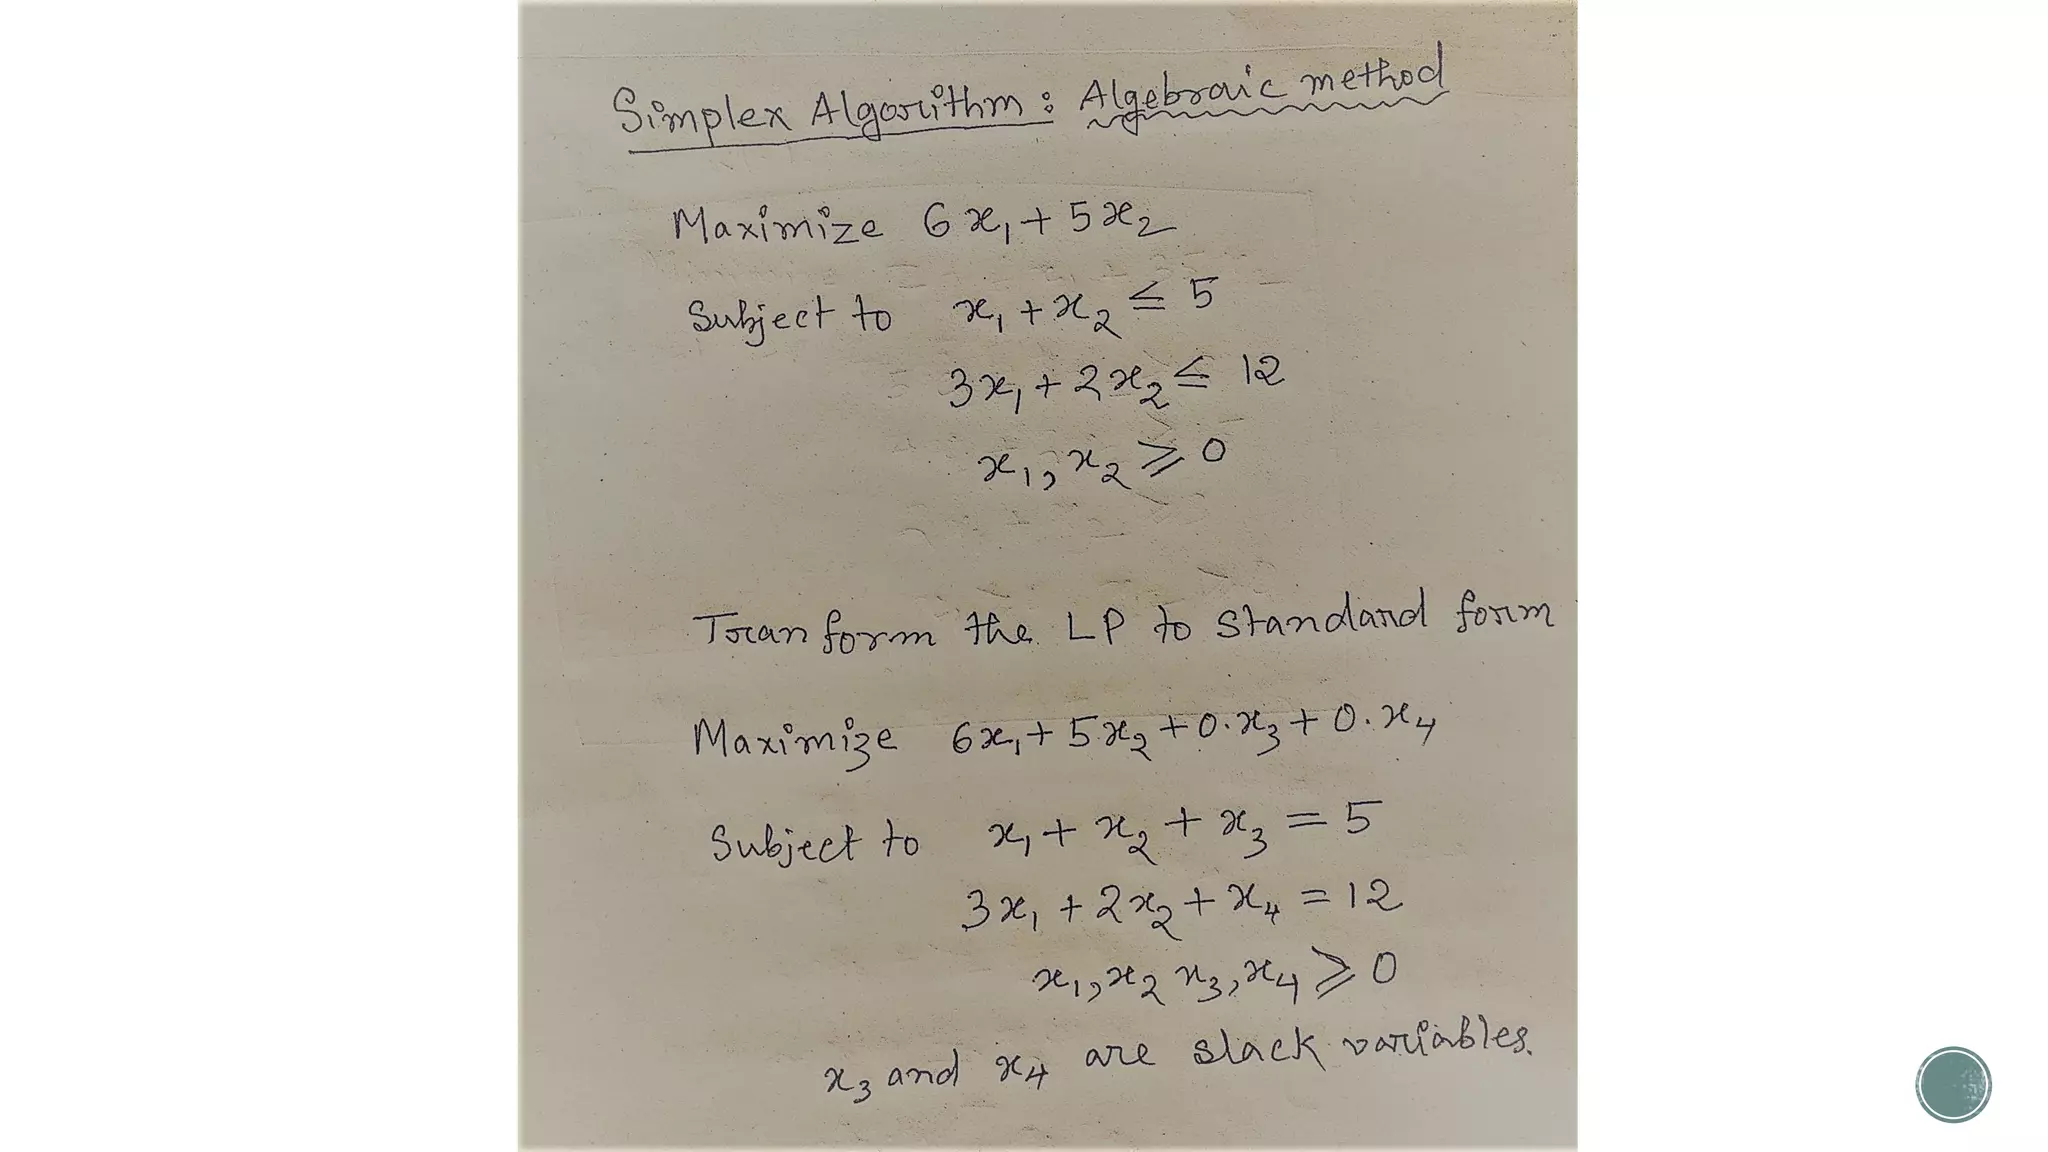 Simplex Algorithm: Algebraic method
Maximize 6x₁ + 5x₂
Subject to x₁ + x₂ ≤ 5
3x₁ + 2x₂ ≤ 12
x₁, x₂ ≥ 0
Tranform the LP to standard form
Maximize 6x₁ + 5x₂ + 0·x₃ + 0·x₄
Subject to x₁ + x₂ + x₃ = 5
3x₁ + 2x₂ + x₄ = 12
x₁, x₂ x₃, x₄ ≥ 0
x₃ and x₄ are slack variables.